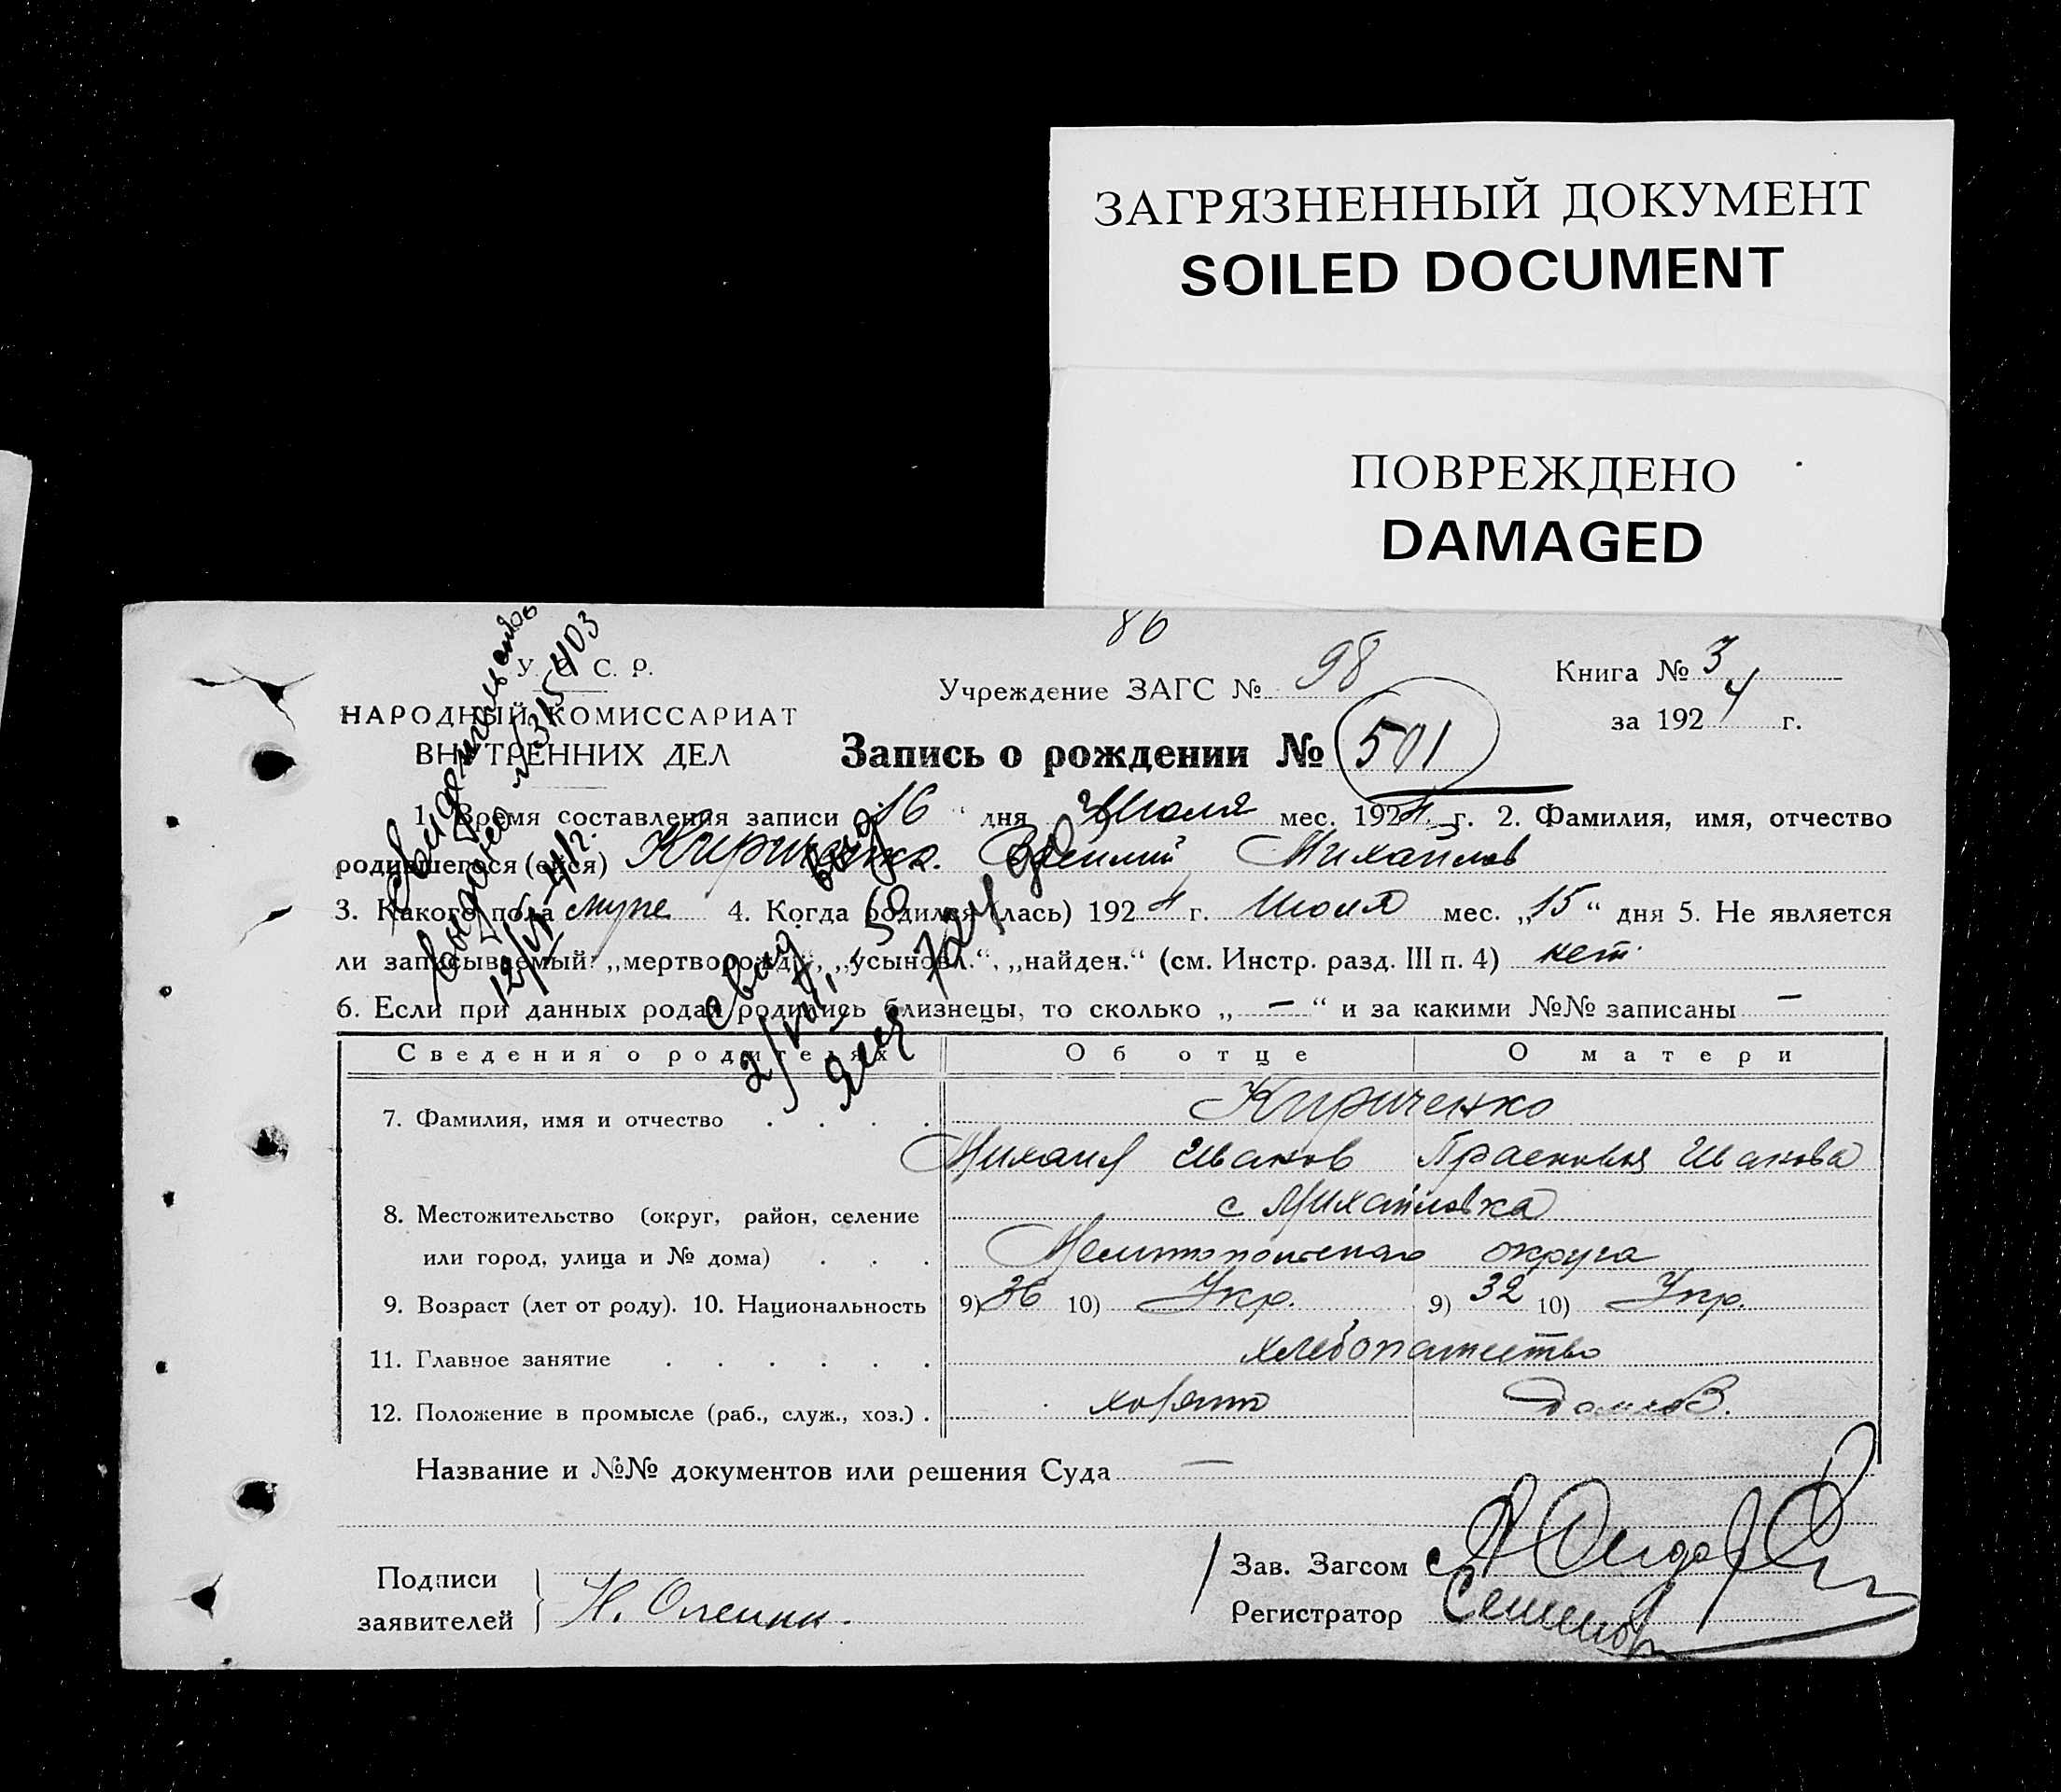 ЗАГРЯЗНЕННЫЙ ДОКУМЕНТ
SOILED DOCUMENT
ПОВРЕЖДЕНО
DAMAGED
86
У. С. С. Р.
НАРОДНЫЙ КОМИССАРИАТ
ВНУТРЕННИХ ДЕЛ
Учреждение ЗАГС № 98
Книга № 3
за 1924 г.
Запись о рождении № 501
1. Время составления записи 16 дня Июля мес. 1924 г. 2. Фамилия, имя, отчество
родившегося (ейся) Кириченко Василий Михайлов
3. Какого пола муж 4. Когда родился (лась) 1924 г. Июля мес. „15“ дня 5. Не является
ли записываемый: „мертворожд.“, „усыновл.“, „найден.“ (см. Инстр. разд. III п. 4) нет
6. Если при данных родах родились близнецы, то сколько „ — “ и за какими №№ записаны —
Сведения о родителях Об отце О матери
7. Фамилия, имя и отчество Кириченко
Михаил Иванов Прасковья Иванова
8. Местожительство (округ, район, селение с Михайловка
или город, улица и № дома) Мелитопольского округа
9. Возраст (лет от роду). 10. Национальность 9) 36 10) Укр. 9) 32 10) Укр.
11. Главное занятие хлебопашество
12. Положение в промысле (раб., служ., хоз.)
Название и №№ документов или решения Суда —
Подписи
заявителей
Зав. Загсом
Регистратор